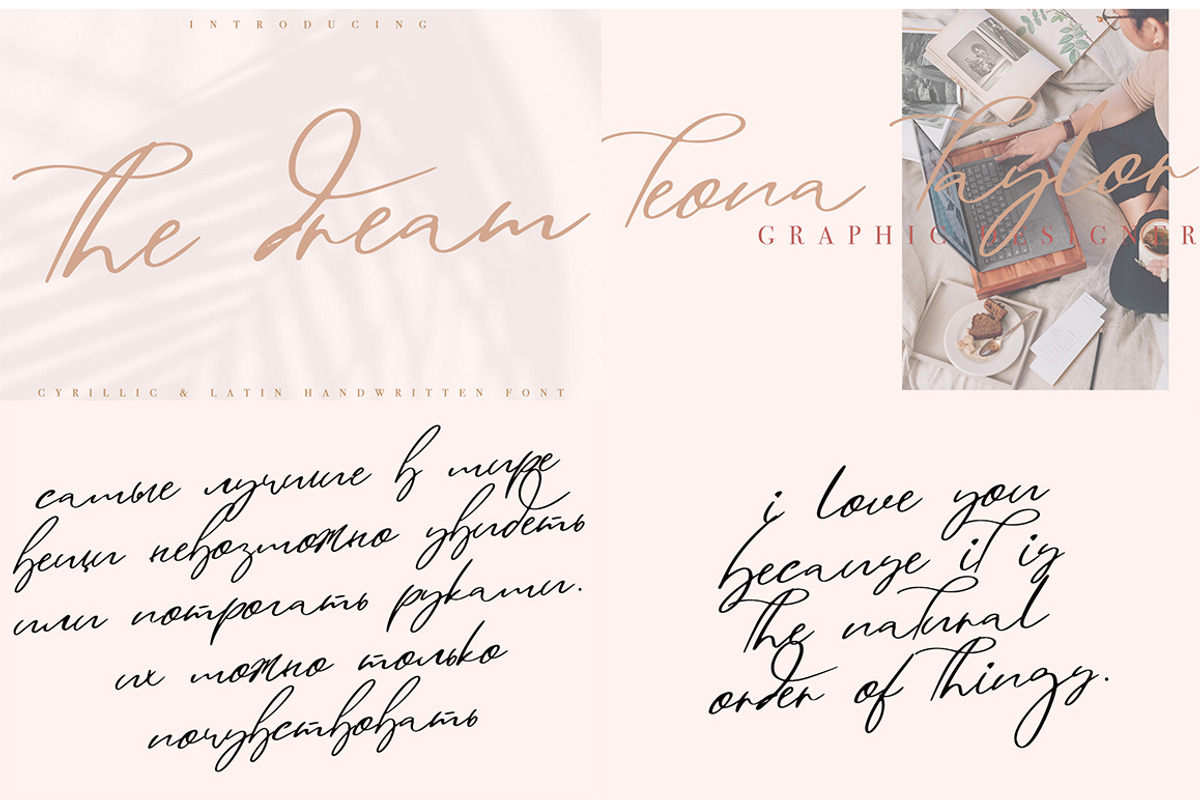 INTRODUCING
The dream
CYRILLIC & LATIN HANDWRITTEN FONT
Teona Taylor
GRAPHIC DESIGNER
самые лучшие в мире
вещи невозможно увидеть
или потрогать руками.
их можно только
почувствовать
i love you
because it is
the natural
order of things.